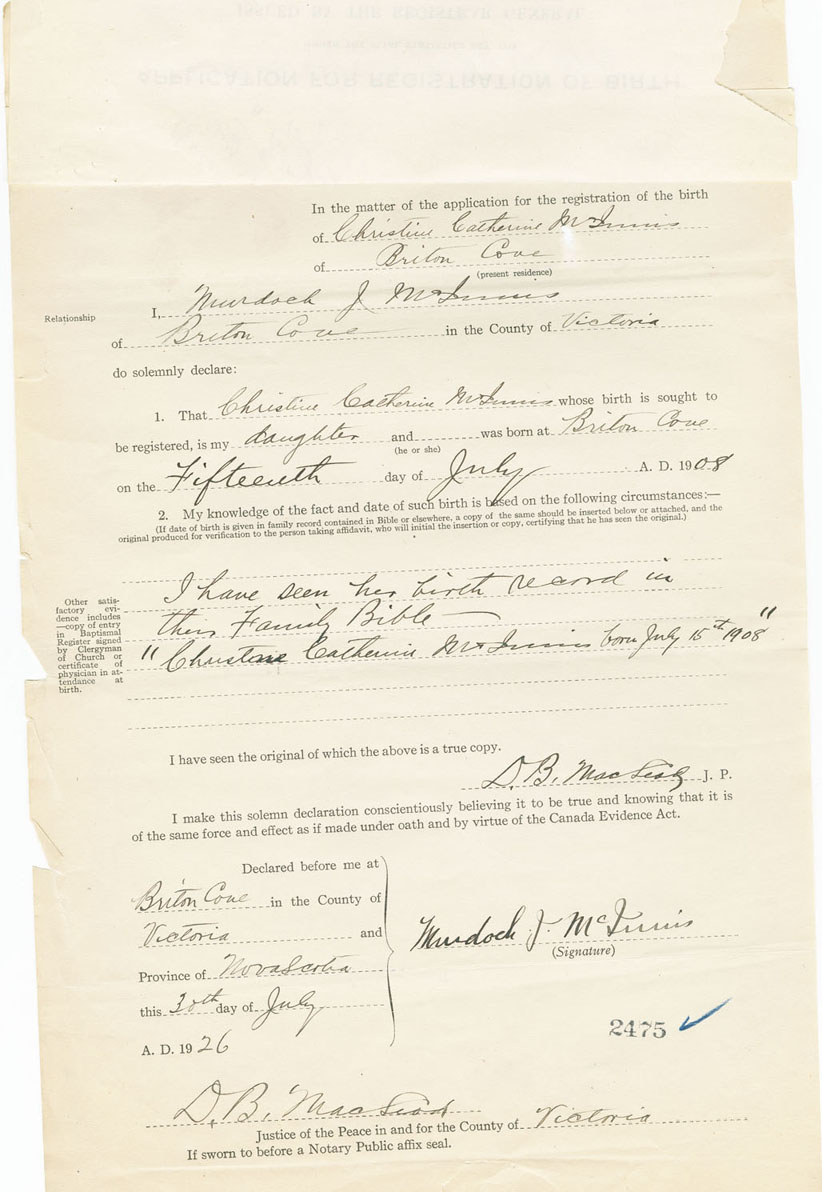 ISSUED BY THE REGISTRAR GENERAL
APPLICATION FOR REGISTRATION OF BIRTH
In the matter of the application for the registration of the birth
of Christine Catherine McInnis
of Briton Cove
(present residence)
Relationship
I, Murdoch J McInnis
of Briton Cove in the County of Victoria
do solemnly declare:
1. That Christine Catherine McInnis whose birth is sought to
be registered, is my daughter and was born at Briton Cove
(he or she)
on the Fifteenth day of July A. D. 1908
2. My knowledge of the fact and date of such birth is based on the following circumstances:—
(If date of birth is given in family record contained in Bible or elsewhere, a copy of the same should be inserted below or attached, and the
original produced for verification to the person taking affidavit, who will initial the insertion or copy, certifying that he has seen the original.)
Other satis-
factory evi-
dence includes
—copy of entry
in Baptismal
Register signed
by Clergyman
of Church or
certificate of
physician in at-
tendance at
birth.
I have seen her birth record in
their Family Bible —
" Christene Catherine McInnis born July 15th 1908 "
I have seen the original of which the above is a true copy.
D. B. MacLeod J. P.
I make this solemn declaration conscientiously believing it to be true and knowing that it is
of the same force and effect as if made under oath and by virtue of the Canada Evidence Act.
Declared before me at
Briton Cove in the County of
Victoria and
Province of Nova Scotia
this 30th day of July
A. D. 1926
Murdoch J. McInnis
(Signature)
2475
D. B. MacLeod
Justice of the Peace in and for the County of Victoria
If sworn to before a Notary Public affix seal.